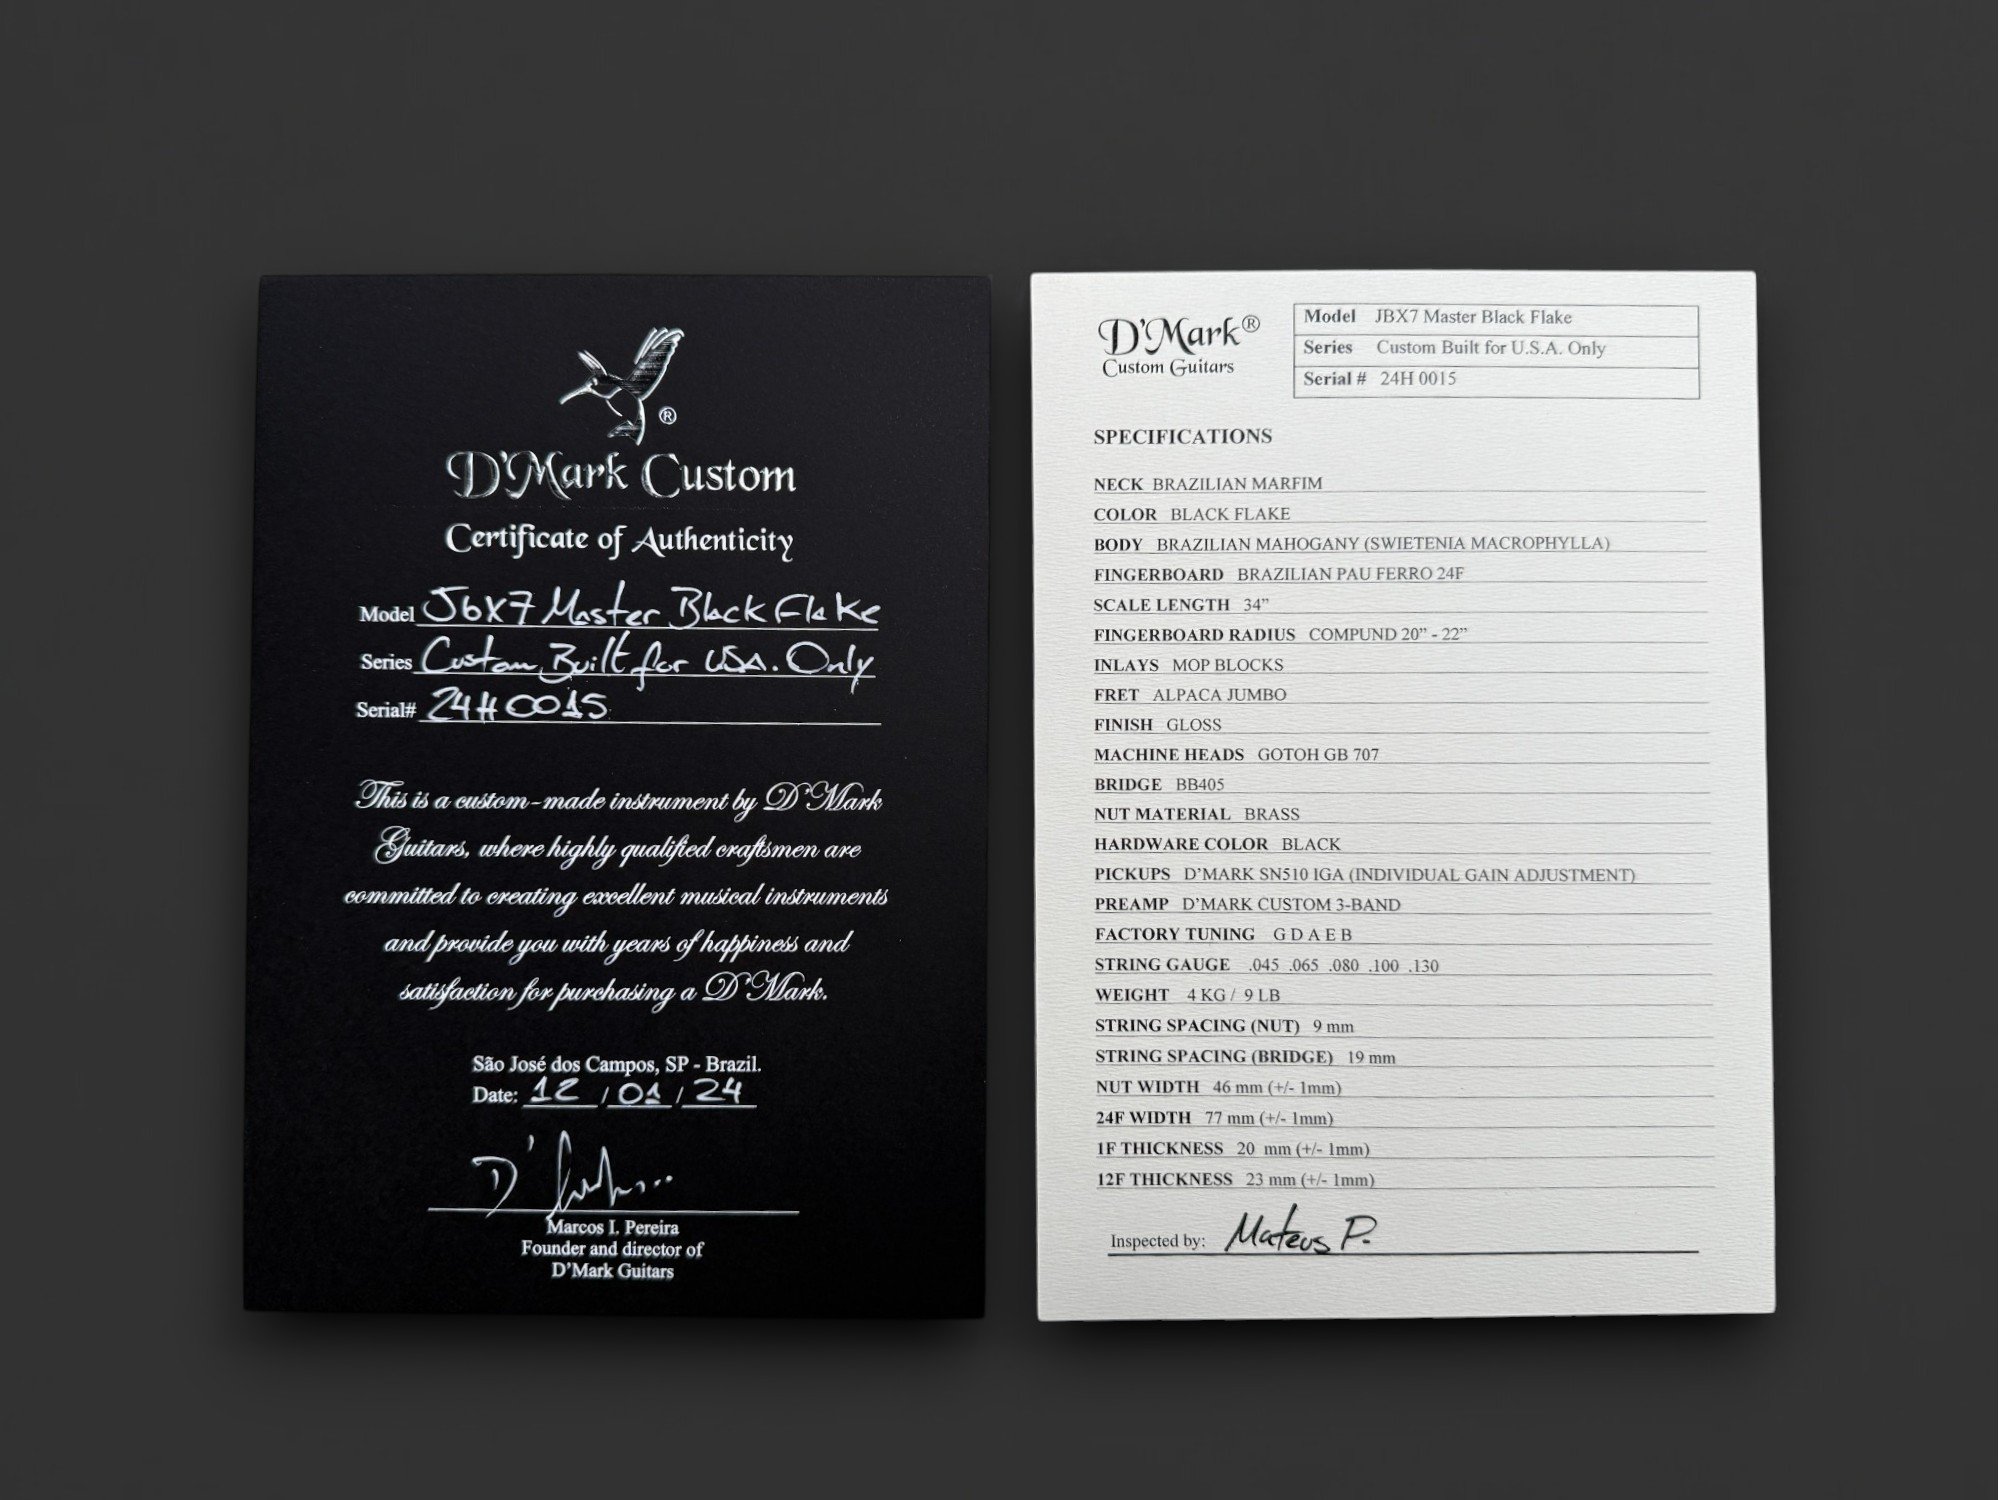 ®
D'Mark Custom
Certificate of Authenticity
Model JBX7 Master Black Flake
Series Custom Built for USA. Only
Serial# 24H0015
This is a custom-made instrument by D'Mark
Guitars, where highly qualified craftsmen are
committed to creating excellent musical instruments
and provide you with years of happiness and
satisfaction for purchasing a D'Mark.
São José dos Campos, SP - Brazil.
Date: 12 / 01 / 24
Marcos I. Pereira
Founder and director of
D'Mark Guitars
D'Mark®
Custom Guitars
Model JBX7 Master Black Flake
Series Custom Built for U.S.A. Only
Serial # 24H 0015
SPECIFICATIONS
NECK BRAZILIAN MARFIM
COLOR BLACK FLAKE
BODY BRAZILIAN MAHOGANY (SWIETENIA MACROPHYLLA)
FINGERBOARD BRAZILIAN PAU FERRO 24F
SCALE LENGTH 34”
FINGERBOARD RADIUS COMPUND 20” - 22”
INLAYS MOP BLOCKS
FRET ALPACA JUMBO
FINISH GLOSS
MACHINE HEADS GOTOH GB 707
BRIDGE BB405
NUT MATERIAL BRASS
HARDWARE COLOR BLACK
PICKUPS D'MARK SN510 IGA (INDIVIDUAL GAIN ADJUSTMENT)
PREAMP D'MARK CUSTOM 3-BAND
FACTORY TUNING G D A E B
STRING GAUGE .045 .065 .080 .100 .130
WEIGHT 4 KG / 9 LB
STRING SPACING (NUT) 9 mm
STRING SPACING (BRIDGE) 19 mm
NUT WIDTH 46 mm (+/- 1mm)
24F WIDTH 77 mm (+/- 1mm)
1F THICKNESS 20 mm (+/- 1mm)
12F THICKNESS 23 mm (+/- 1mm)
Inspected by: Mateus P.